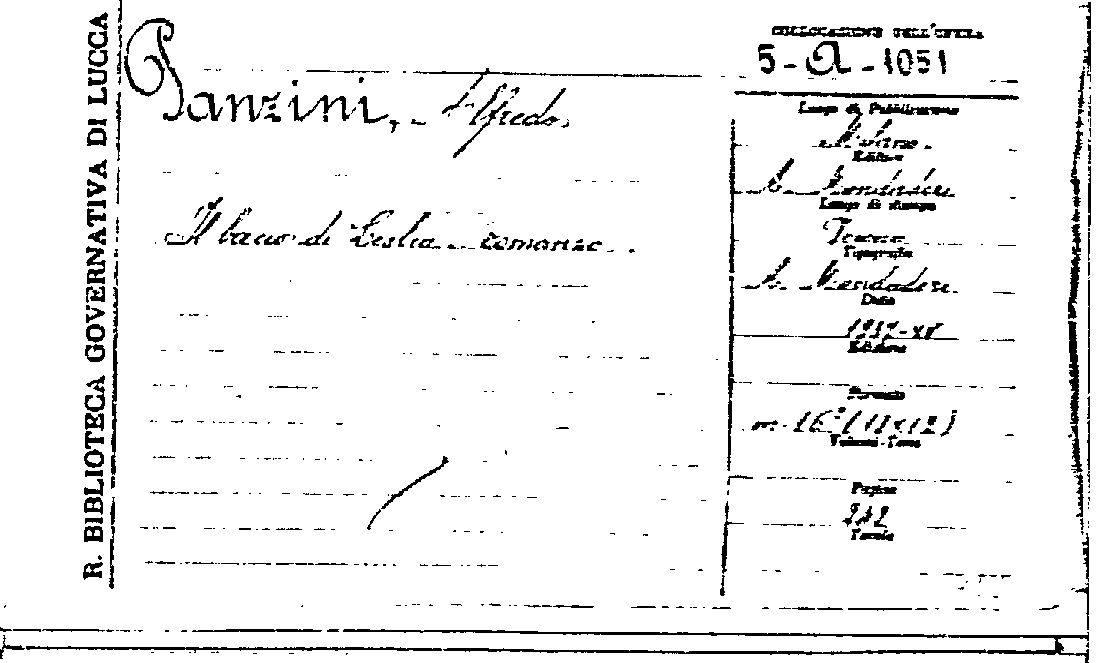 R. BIBLIOTECA GOVERNATIVA DI LUCCA
Panzini, Alfredo.
Il bacio di Lesbia romanzo.
COLLOCAZIONE DELL'OPERA
5-A-1051
Luogo di Pubblicazione
Milano
Editore
A. Mondadori
Luogo di stampa
Verona
Tipografia
A. Mondadori
Data
1937-XV
Edizione
Formato
in 16° (
Volumi-Tomo
Pagine
242
Tavole